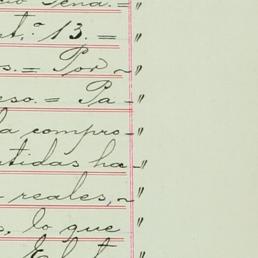 nt.º 13. = "
s. = Por ~ "
eso. = Pa- "
la compro- "
tidas ha- "
reales, ~ "
s, lo que "